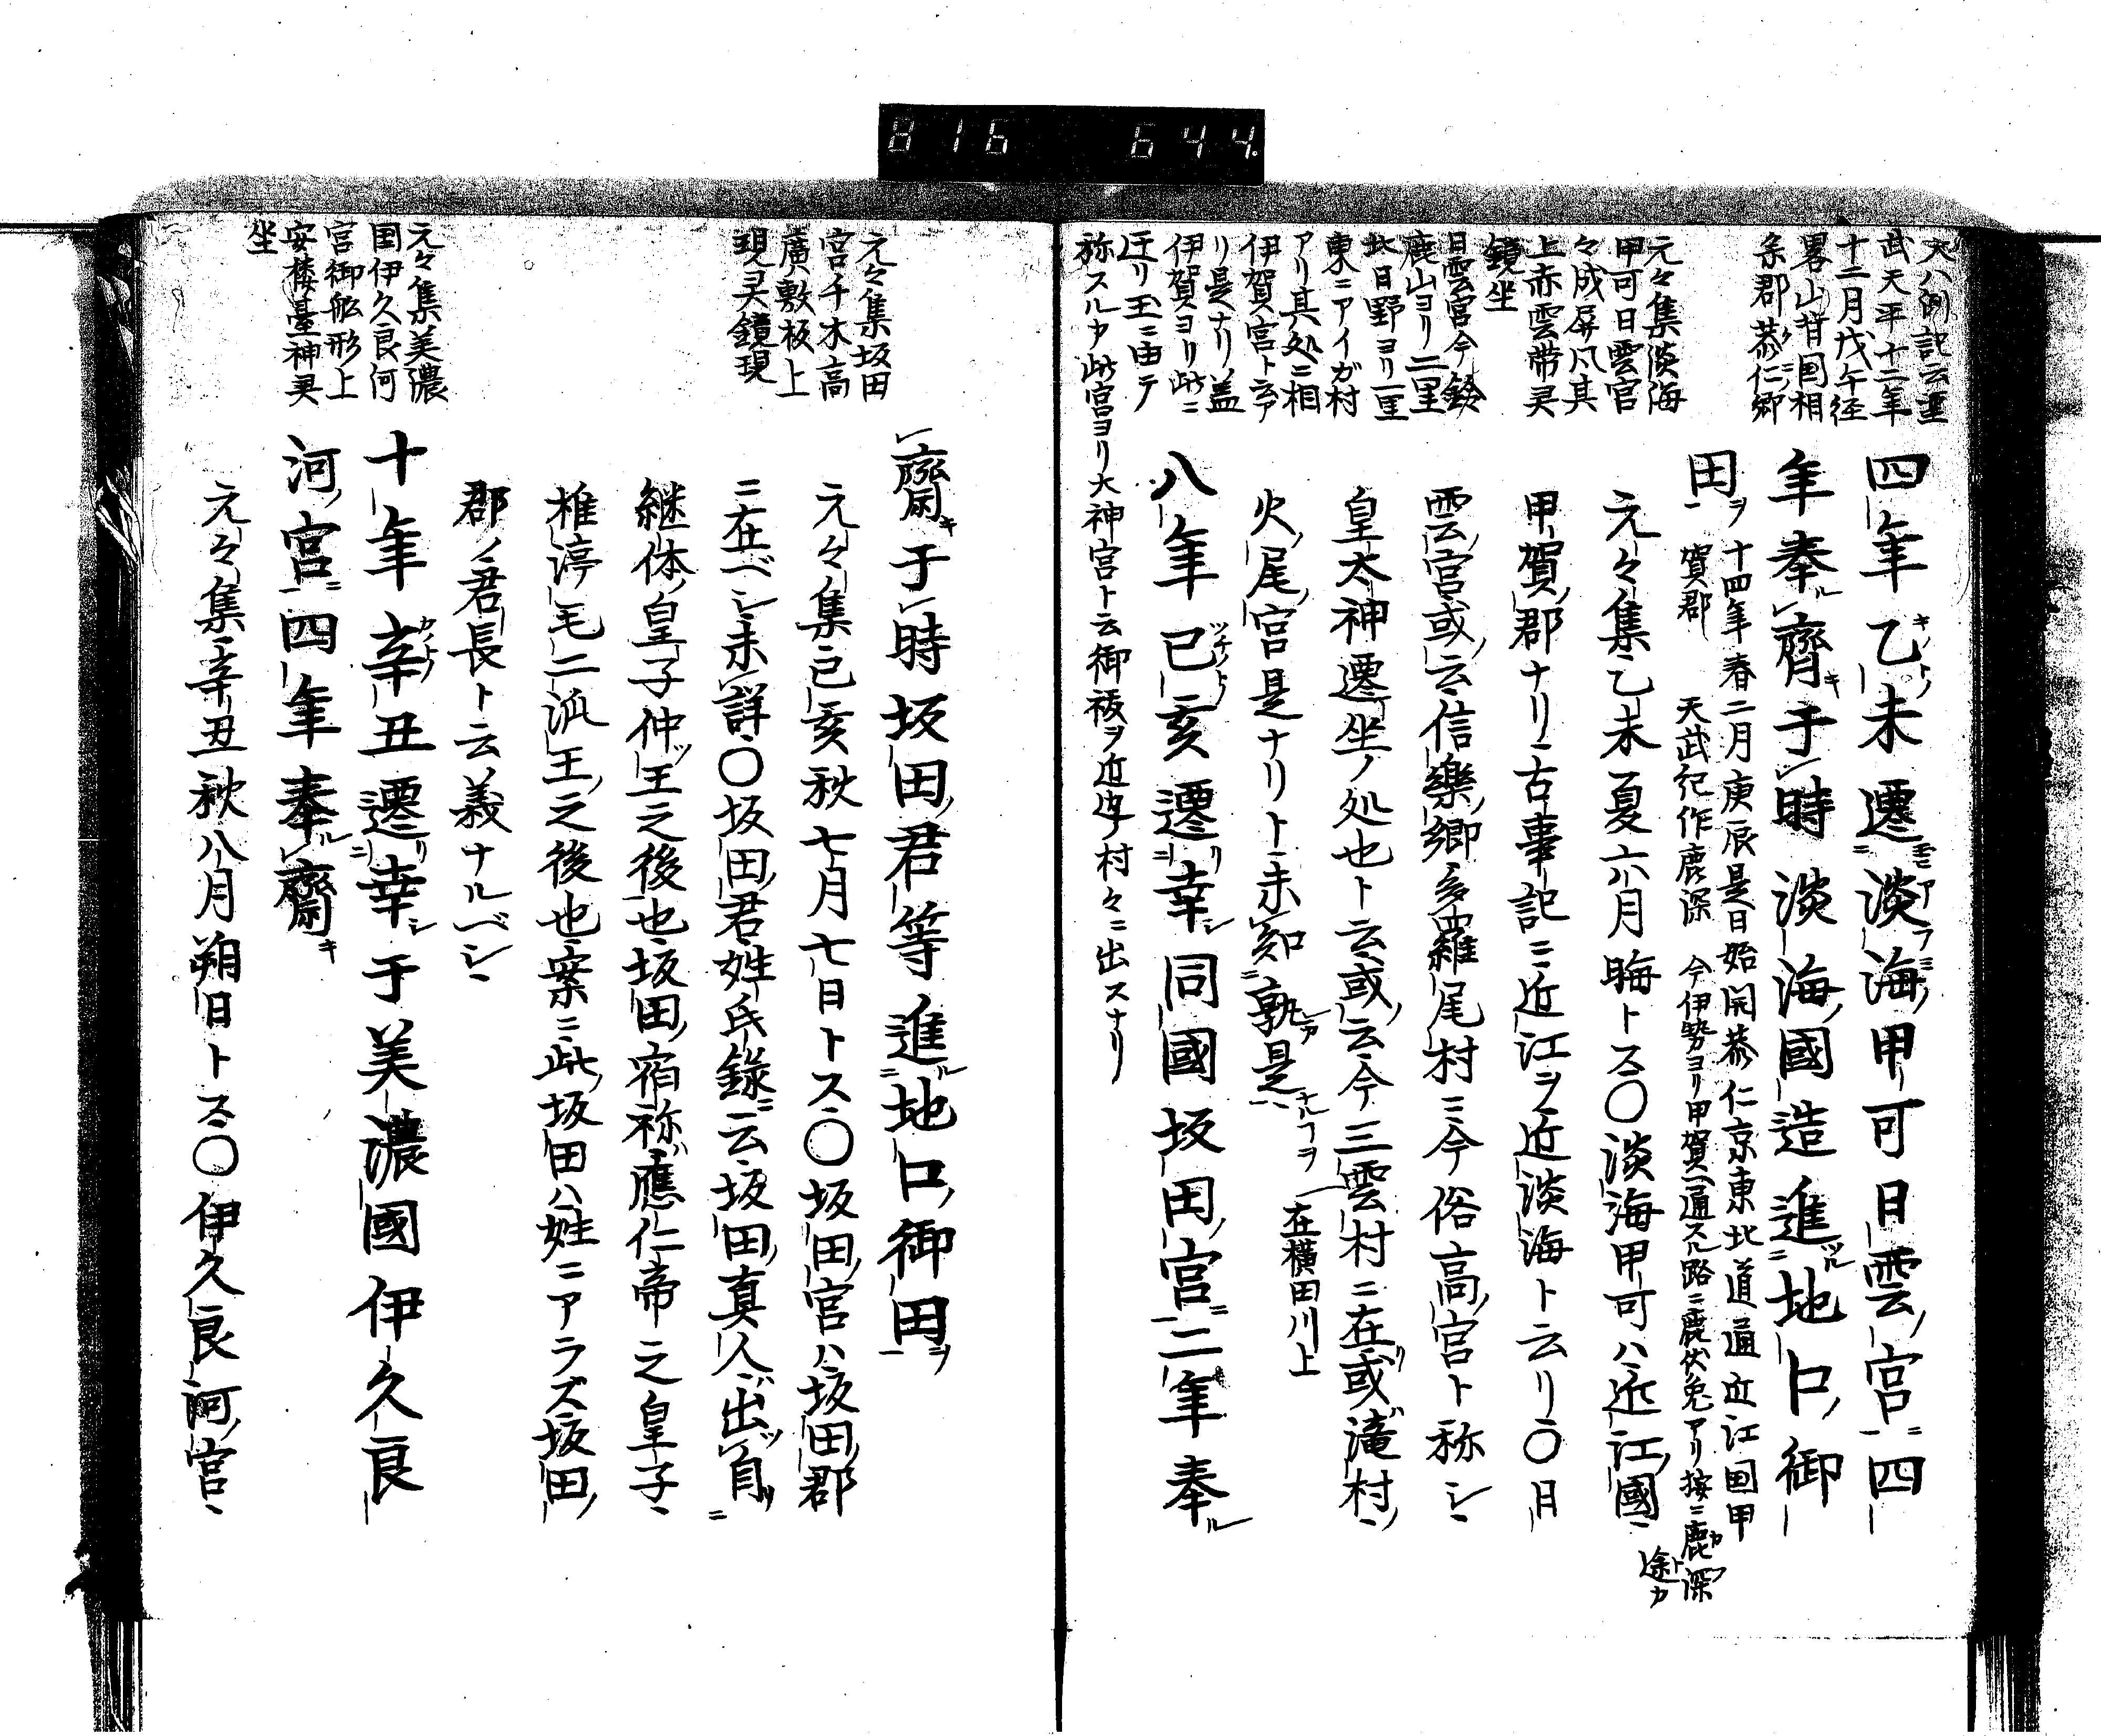 816 644
大八例記云聖
武天平十二年
十二月戊午経
畧山背国相
条郡恭仁郷
元々集淡海
甲可日雲宮
々成屏風其
上赤雲帯灵
鏡坐
日雲宮今鈴
鹿山ヨリ二里
北日野ヨリ一里
東ニアイガ村
アリ其処ニ相
伊賀宮ト云ア
リ是ナリ盖
伊賀ヨリ此ニ
迁リ玉ニ由テ
称スルカ此宮ヨリ大神宮ト云御祓ヲ近迠村々ニ出スナリ
四年乙未遷淡海甲可日雲宮四
年奉齊于時淡海國造進地口御
田
十四年春二月庚辰是日始開恭仁京東北道通近江国甲
賀郡 天武紀作鹿深 今伊勢ヨリ甲賀ヘ通スル路ニ鹿伏兔アリ按ニ鹿深
途カ
元々集乙未夏六月晦トス〇淡海甲可ハ近江國
甲賀郡ナリ古事記ニ近江ヲ近淡海ト云リ〇日
雲宮或云信樂郷多羅尾村ニ今俗高宮ト称シ
皇太神遷坐ノ処也ト云或云今三雲村ニ在或滝村
火尾宮是ナリト未知孰是 在横田川上
八年己亥遷幸同國坂田宮二年奉
齋于時坂田君等進地口御田
元々集己亥秋七月七日トス〇坂田宮ハ坂田郡
ニ在ベシ未詳〇坂田君姓氏錄云坂田真人出自
継体皇子仲王之後也坂田宿祢應仁帝之皇子
椎渟毛二派王之後也案ニ此坂田ハ姓ニアラズ坂田
郡ノ君長ト云義ナルベシ
十年辛丑遷幸于美濃國伊久良
河宮四年奉齋
元々集辛丑秋八月朔日トス〇伊久良河宮
元々集坂田
宮千木高
廣敷板上
現灵鏡現
元々集美濃
国伊久良河
宮御舩形上
安楼臺神灵
坐